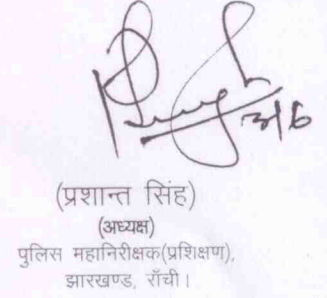 3/6
(प्रशान्त सिंह)
(अध्यक्ष)
पुलिस महानिरीक्षक(प्रशिक्षण),
झारखण्ड, राँची।